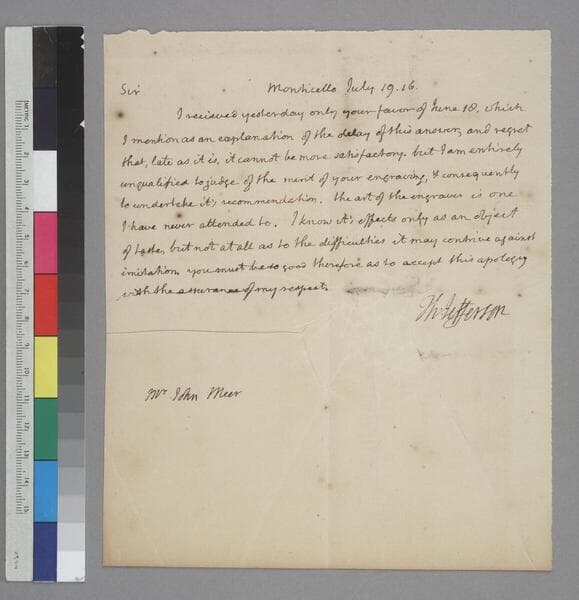 Sir Monticello July 19. 16.
I recieved yesterday only your favor of June 18. which
I mention as an explanation of the delay of this answer, and regret
that, late as it is, it cannot be more satisfactory. but I am entirely
unqualified to judge of the merit of your engraving, & consequently
to undertake it's recommendation. the art of the engraver is one
I have never attended to. I know it's effects only as an object
of taste, but not at all as to the difficulties it may contrive against
imitation. you must be so good therefore as to accept this apology
with the assurance of my respect.
Th: Jefferson
Mr. John Meer